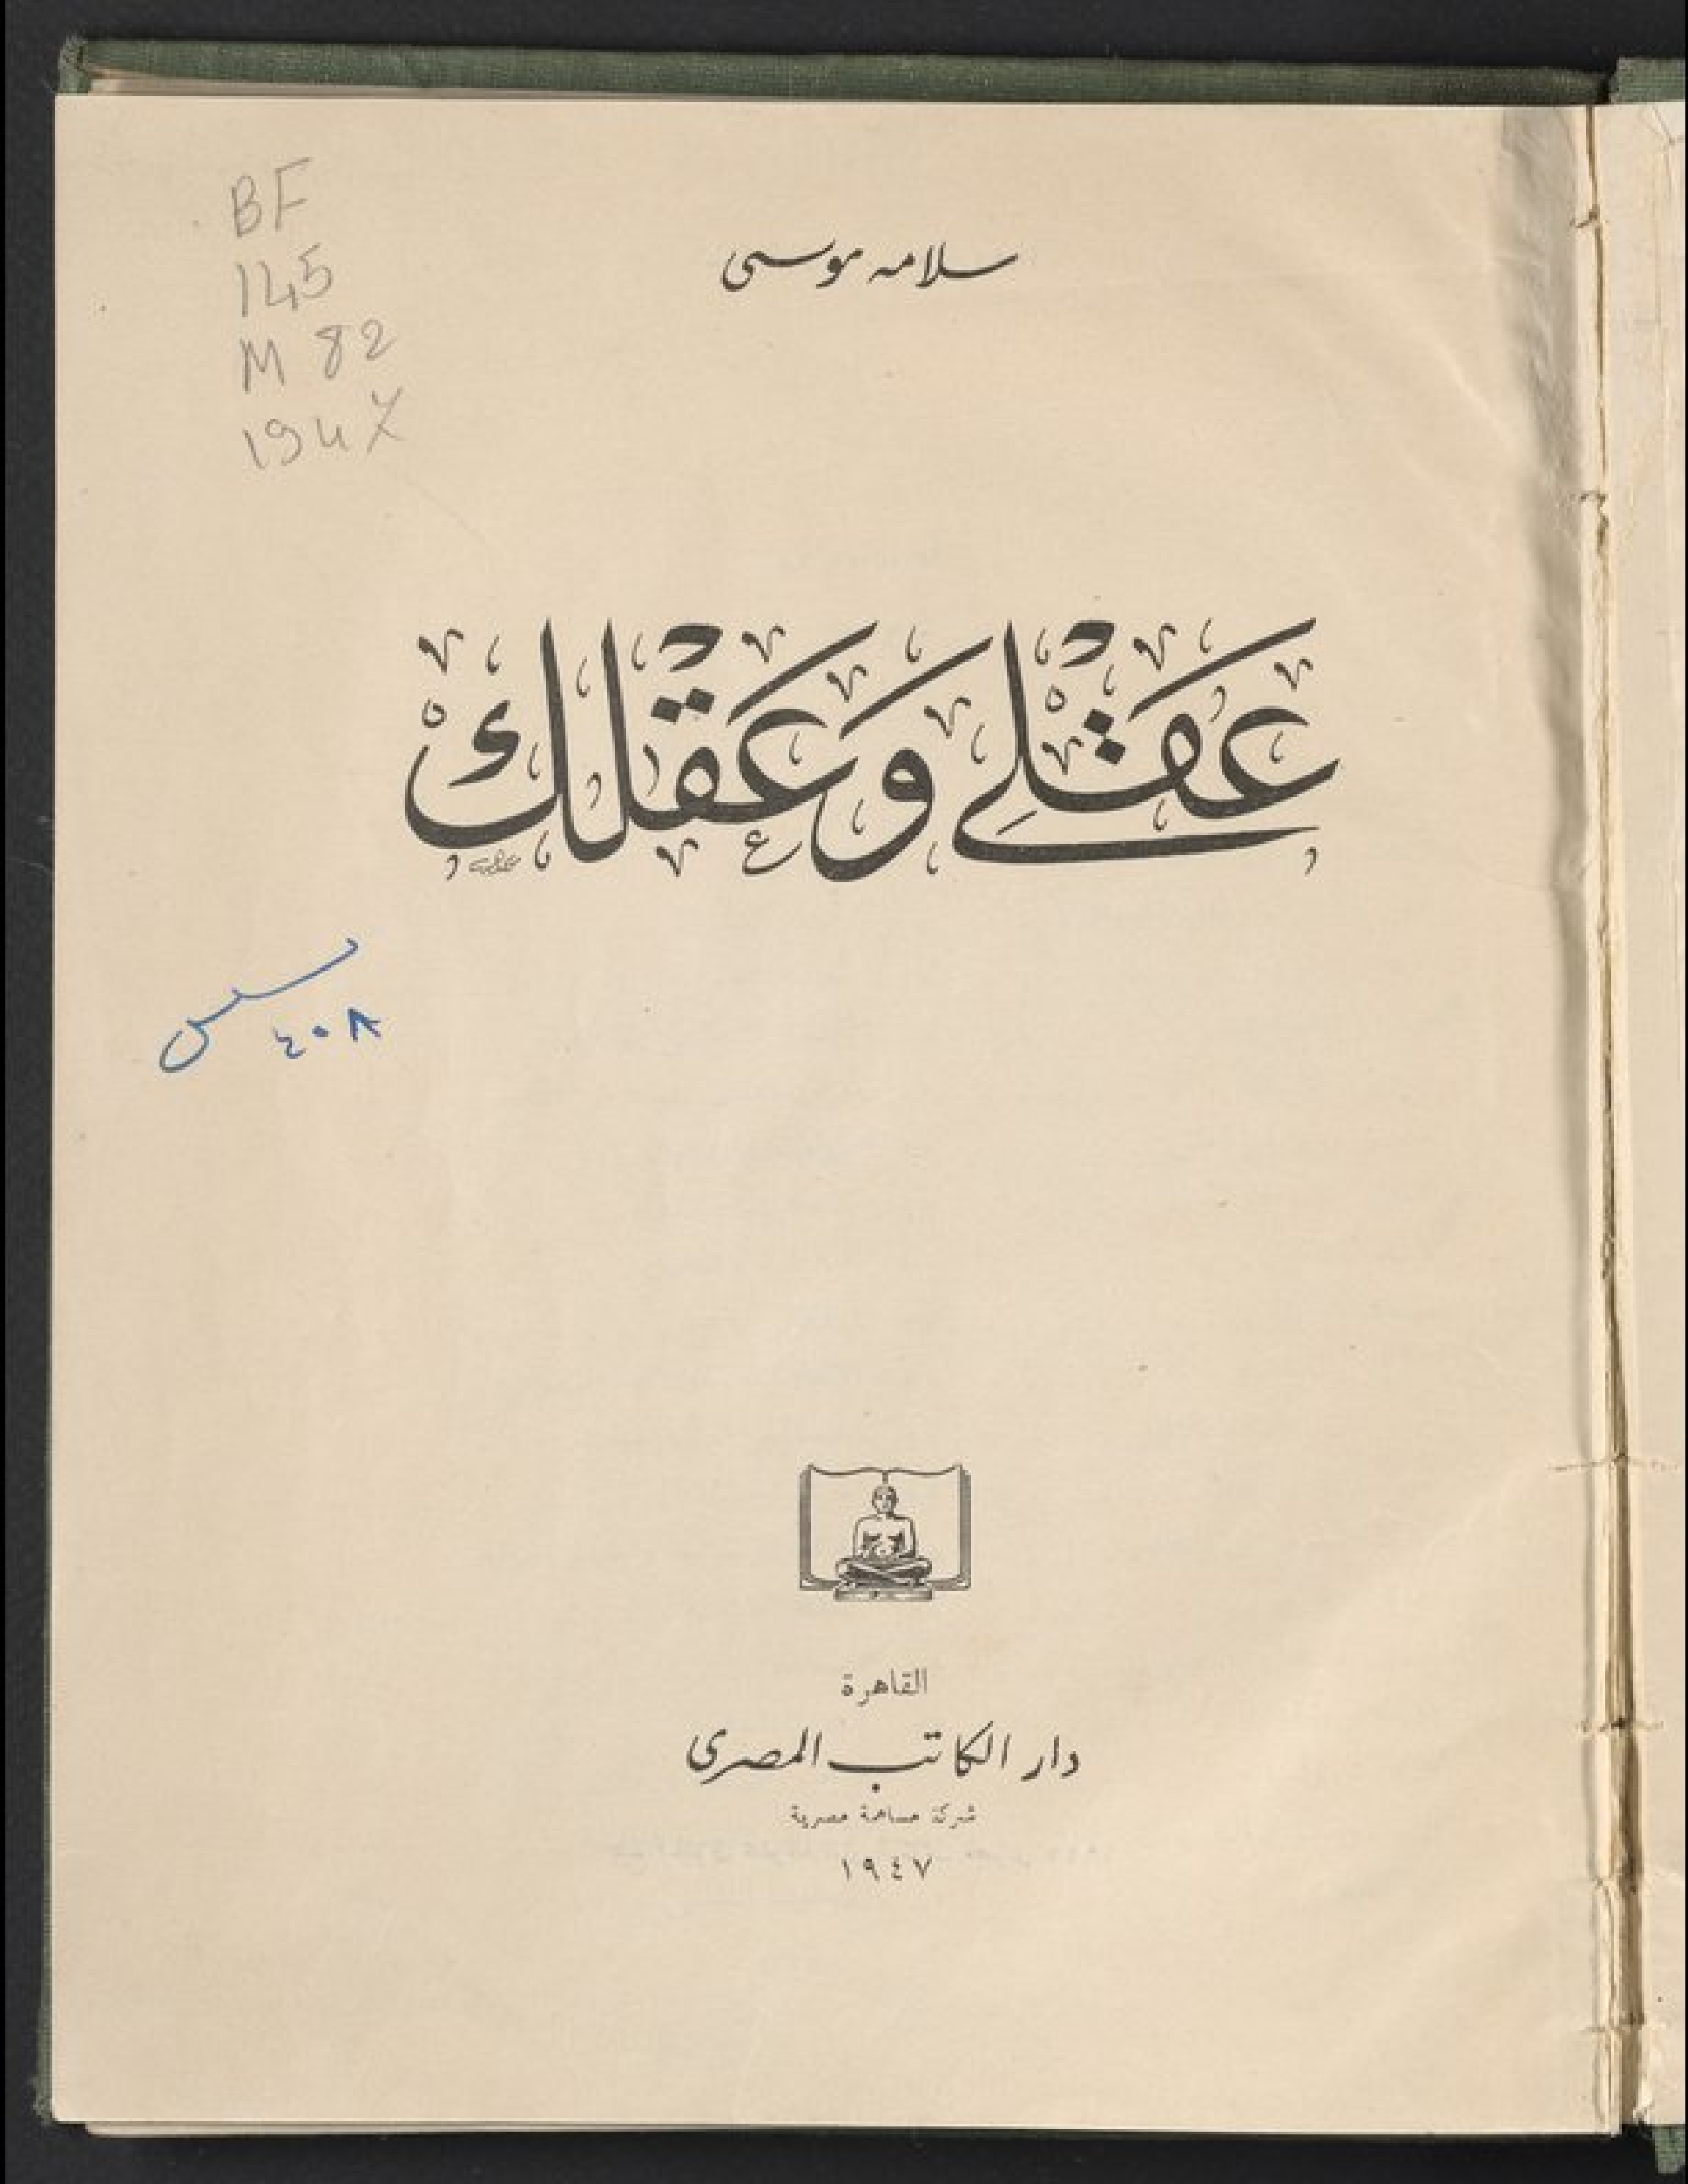 BF
145
M 82
1947
سلامه موسى
عَقْلِي وَعَقْلك
٤٠٨
القاهرة
دار الكاتب المصرى
شركة مساهمة مصرية
١٩٤٧